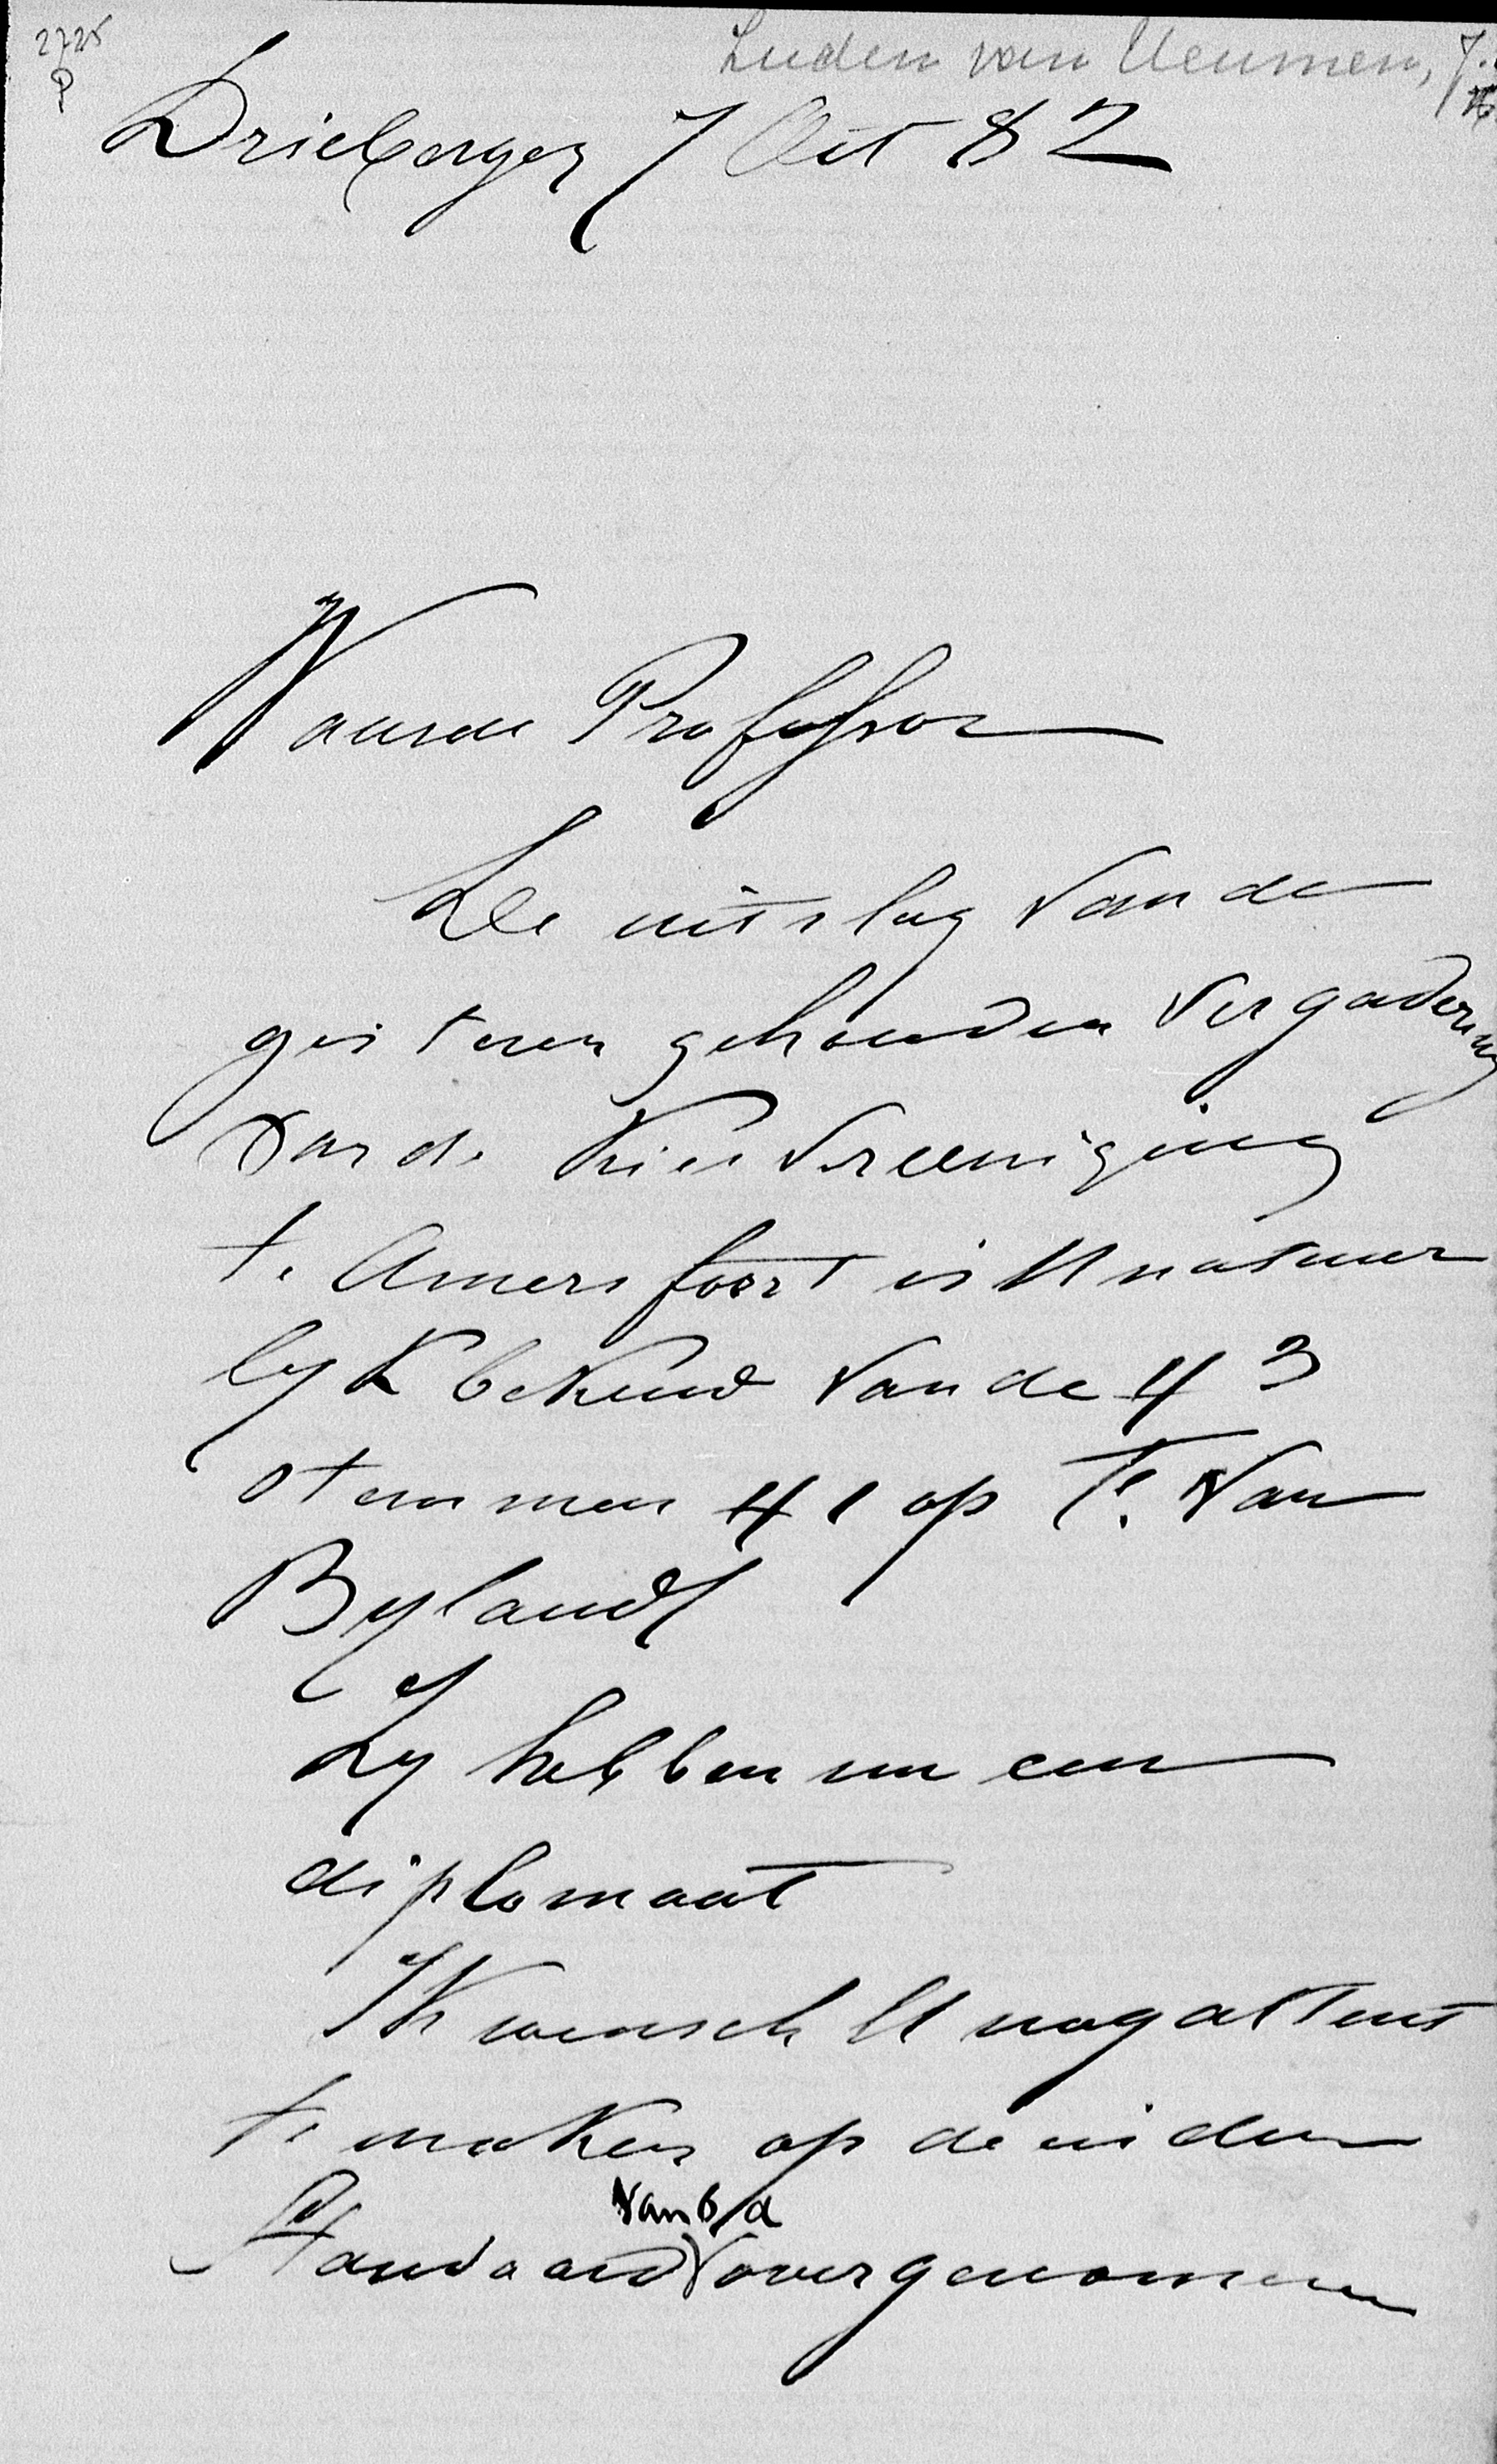 2725
P
Luden van Heumen, J.
Driebergen 7 Oct 82
Waarde Professor
De uitslag van de
gisteren gehouden Vergadering
van de Kies Vereeniging
te Amersfoort is U natuur
lyk bekend van de 43
stemmen 41 op T. van
Bylandt
Zy hebben nu een
diplomaat
Ik wensch U nog attent
te maken op de in den
van 6/d
Standaard overgenomen